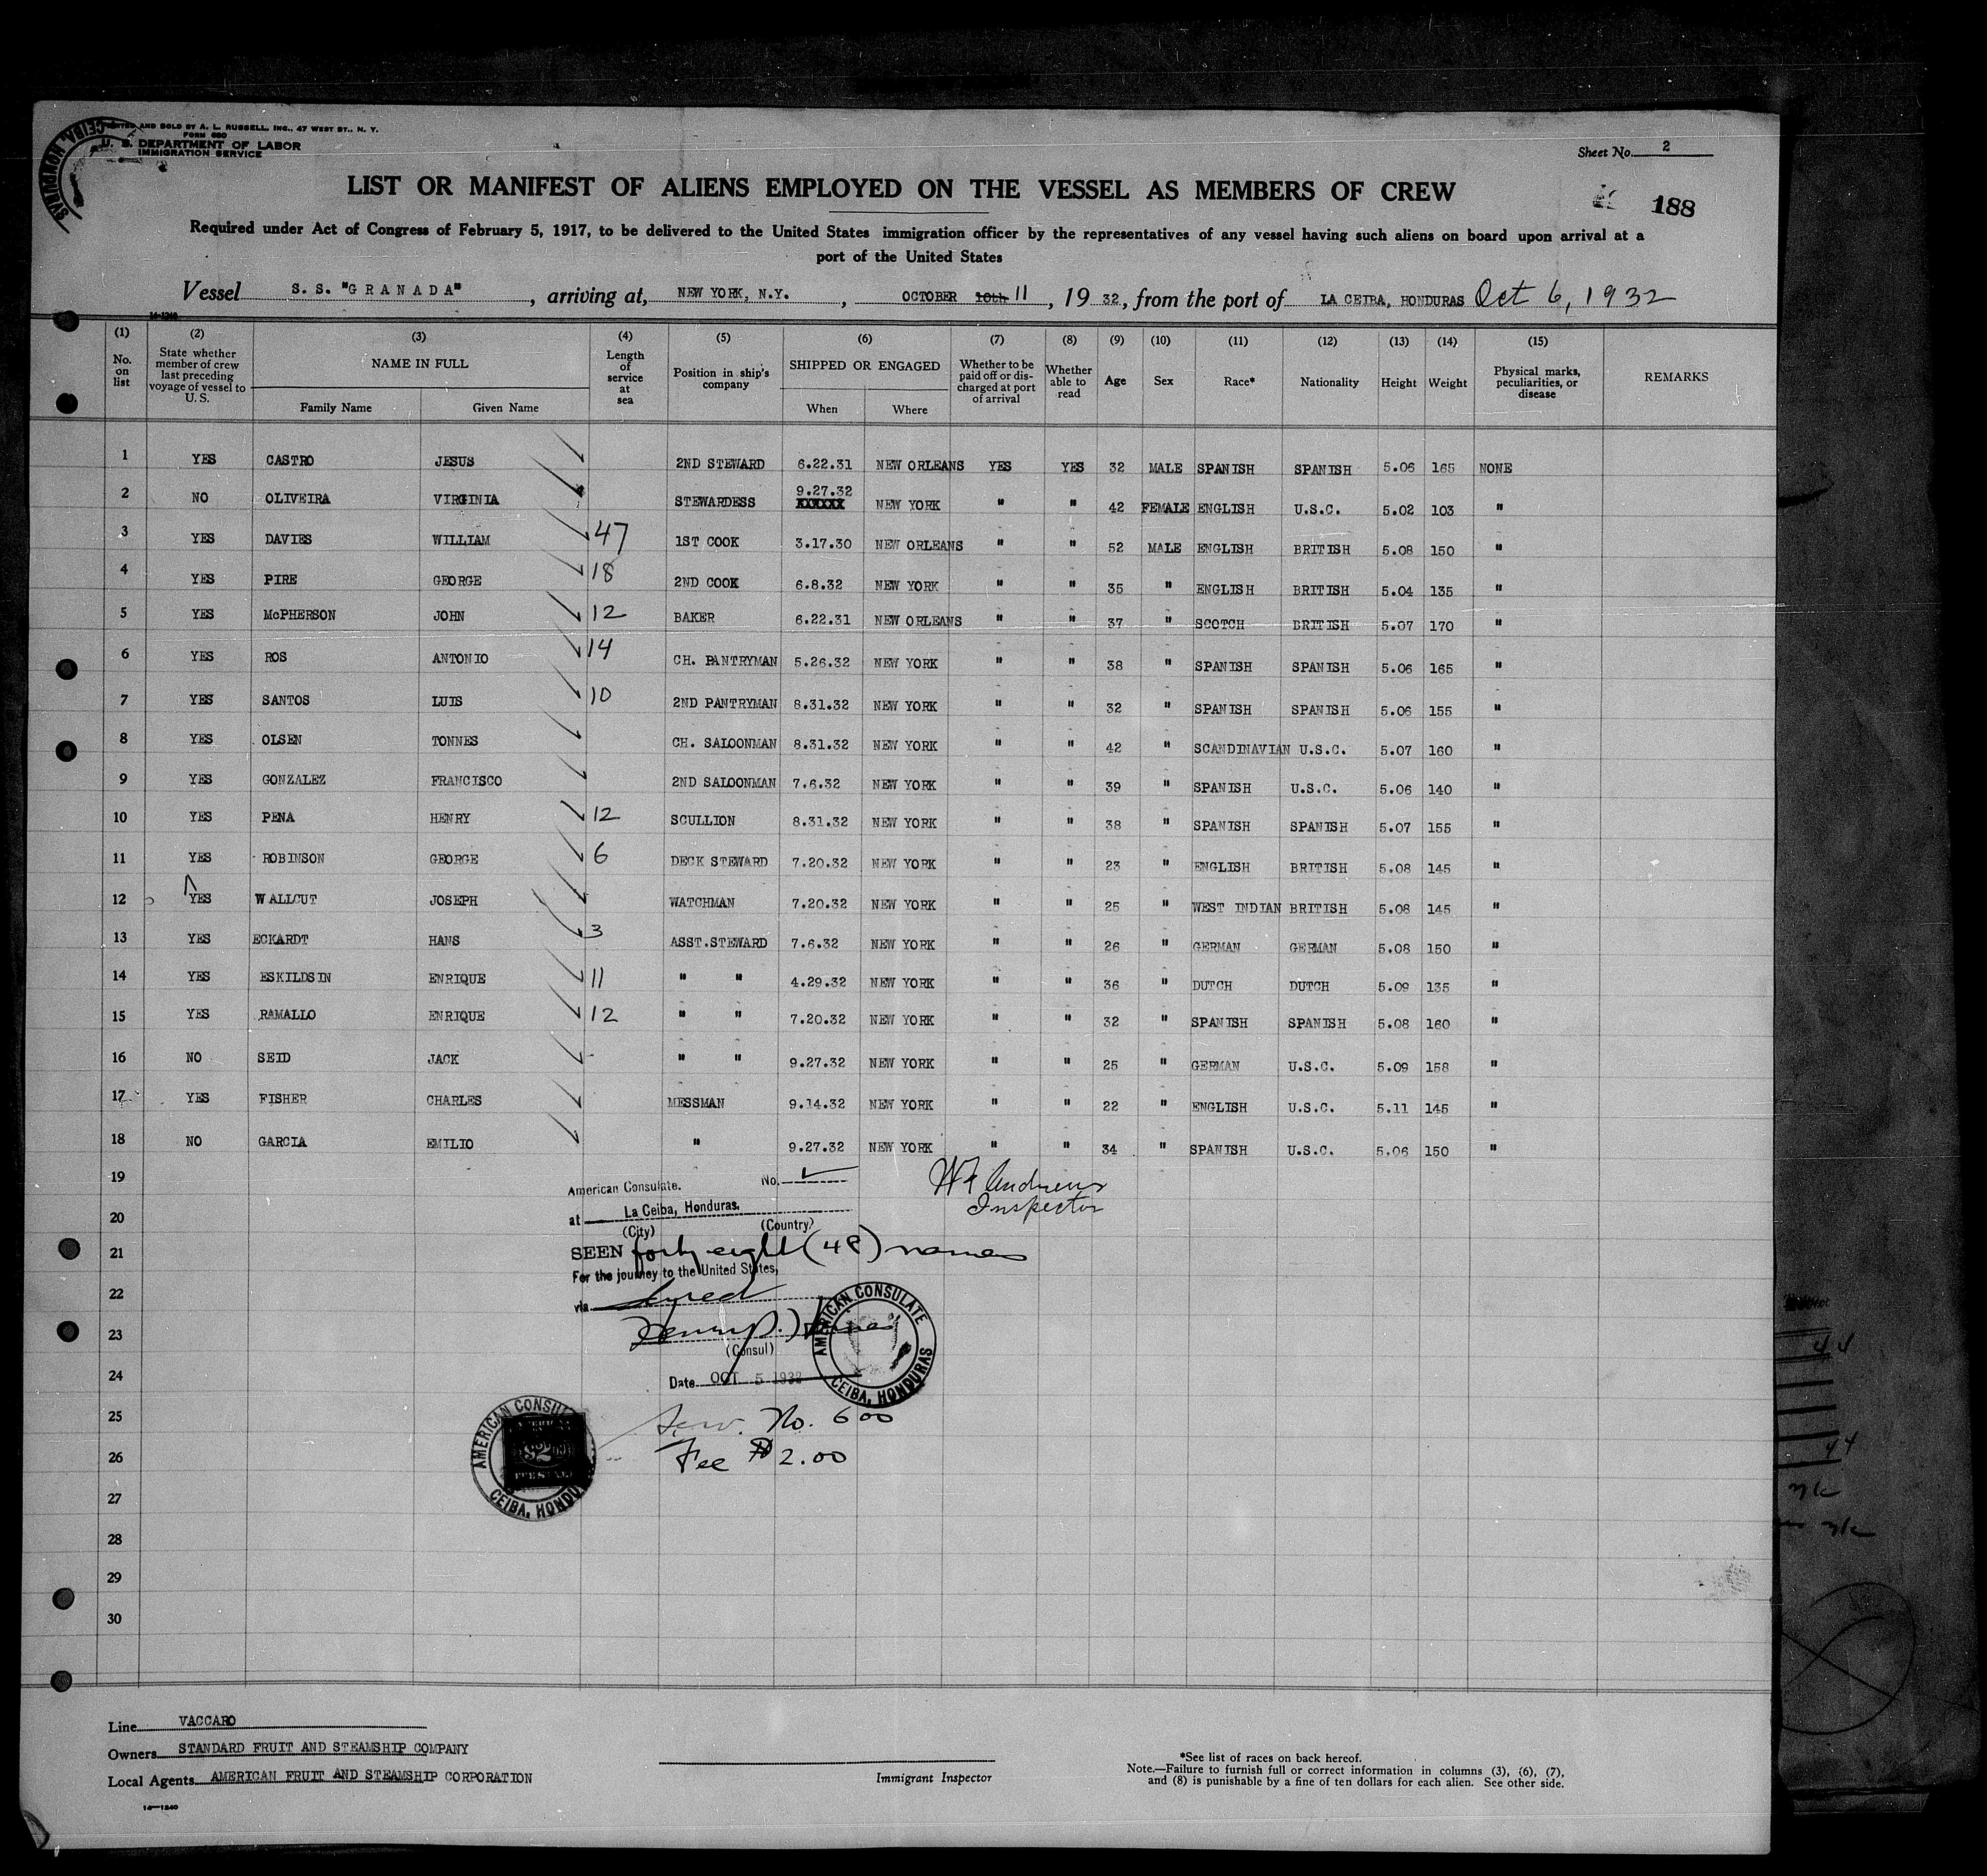 PRINTED AND SOLD BY A. L. RUSSELL, INC., 47 WEST ST., N. Y.
FORM 680
U. S. DEPARTMENT OF LABOR
IMMIGRATION SERVICE
Sheet No. 2
LIST OR MANIFEST OF ALIENS EMPLOYED ON THE VESSEL AS MEMBERS OF CREW
188
Required under Act of Congress of February 5, 1917, to be delivered to the United States immigration officer by the representatives of any vessel having such aliens on board upon arrival at a
port of the United States
Vessel S. S. "GRANADA", arriving at, NEW YORK, N.Y., OCTOBER 10th 11, 1932, from the port of LA CEIBA, HONDURAS Oct 6, 1932
14-1240
(1) (2) (3) (4) (5) (6) (7) (8) (9) (10) (11) (12) (13) (14) (15)
No. on list | State whether member of crew last preceding voyage of vessel to U. S. | NAME IN FULL | Length of service at sea | Position in ship's company | SHIPPED OR ENGAGED | Whether to be paid off or discharged at port of arrival | Whether able to read | Age | Sex | Race* | Nationality | Height | Weight | Physical marks, peculiarities, or disease | REMARKS
Family Name | Given Name | When | Where
1 YES CASTRO JESUS 2ND STEWARD 6.22.31 NEW ORLEANS YES YES 32 MALE SPANISH SPANISH 5.06 165 NONE
2 NO OLIVEIRA VIRGINIA STEWARDESS 9.27.32 XXXXXX NEW YORK " " 42 FEMALE ENGLISH U.S.C. 5.02 103 "
3 YES DAVIES WILLIAM 47 1ST COOK 3.17.30 NEW ORLEANS " " 52 MALE ENGLISH BRITISH 5.08 150 "
4 YES PIRE GEORGE 18 2ND COOK 6.8.32 NEW YORK " " 35 " ENGLISH BRITISH 5.04 135 "
5 YES McPHERSON JOHN 12 BAKER 6.22.31 NEW ORLEANS " " 37 " SCOTCH BRITISH 5.07 170 "
6 YES ROS ANTONIO 14 CH. PANTRYMAN 5.26.32 NEW YORK " " 38 " SPANISH SPANISH 5.06 165 "
7 YES SANTOS LUIS 10 2ND PANTRYMAN 8.31.32 NEW YORK " " 32 " SPANISH SPANISH 5.06 155 "
8 YES OLSEN TONNES CH. SALOONMAN 8.31.32 NEW YORK " " 42 " SCANDINAVIAN U.S.C. 5.07 160 "
9 YES GONZALEZ FRANCISCO 2ND SALOONMAN 7.6.32 NEW YORK " " 39 " SPANISH U.S.C. 5.06 140 "
10 YES PENA HENRY 12 SCULLION 8.31.32 NEW YORK " " 38 " SPANISH SPANISH 5.07 155 "
11 YES ROBINSON GEORGE 6 DECK STEWARD 7.20.32 NEW YORK " " 23 " ENGLISH BRITISH 5.08 145 "
12 YES WALLCUT JOSEPH WATCHMAN 7.20.32 NEW YORK " " 25 " WEST INDIAN BRITISH 5.08 145 "
13 YES ECKARDT HANS 3 ASST.STEWARD 7.6.32 NEW YORK " " 26 " GERMAN GERMAN 5.08 150 "
14 YES ESKILDSIN ENRIQUE 11 " " 4.29.32 NEW YORK " " 36 " DUTCH DUTCH 5.09 135 "
15 YES RAMALLO ENRIQUE 12 " " 7.20.32 NEW YORK " " 32 " SPANISH SPANISH 5.08 160 "
16 NO SEID JACK " " 9.27.32 NEW YORK " " 25 " GERMAN U.S.C. 5.09 158 "
17 YES FISHER CHARLES MESSMAN 9.14.32 NEW YORK " " 22 " ENGLISH U.S.C. 5.11 145 "
18 NO GARCIA EMILIO " 9.27.32 NEW YORK " " 34 " SPANISH U.S.C. 5.06 150 "
19
20
21
22
23
24
25
26
27
28
29
30
American Consulate. No.
at La Ceiba, Honduras.
(City) (Country)
SEEN forty eight (48) names
For the journey to the United States,
via
(Consul)
Date OCT 5 1932
Andrews
Inspector
AMERICAN CONSULATE CEIBA, HONDURAS
Serv. No. 600
Fee $2.00
AMERICAN CONSULATE CEIBA, HONDURAS
Line VACCARO
Owners STANDARD FRUIT AND STEAMSHIP COMPANY
Local Agents AMERICAN FRUIT AND STEAMSHIP CORPORATION
14-1240
Immigrant Inspector
*See list of races on back hereof.
Note.—Failure to furnish full or correct information in columns (3), (6), (7),
and (8) is punishable by a fine of ten dollars for each alien. See other side.